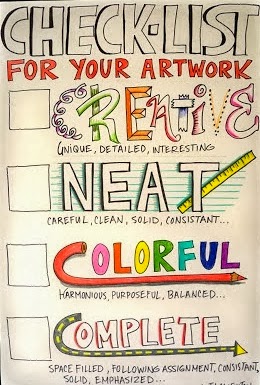 CHECK-LIST
FOR YOUR ARTWORK
CREATIVE
UNIQUE, DETAILED, INTERESTING
NEAT
CAREFUL, CLEAN, SOLID, CONSISTANT...
COLORFUL
HARMONIOUS, PURPOSEFUL, BALANCED...
COMPLETE
SPACE FILLED, FOLLOWING ASSIGNMENT, CONSISTANT,
SOLID, EMPHASIZED...